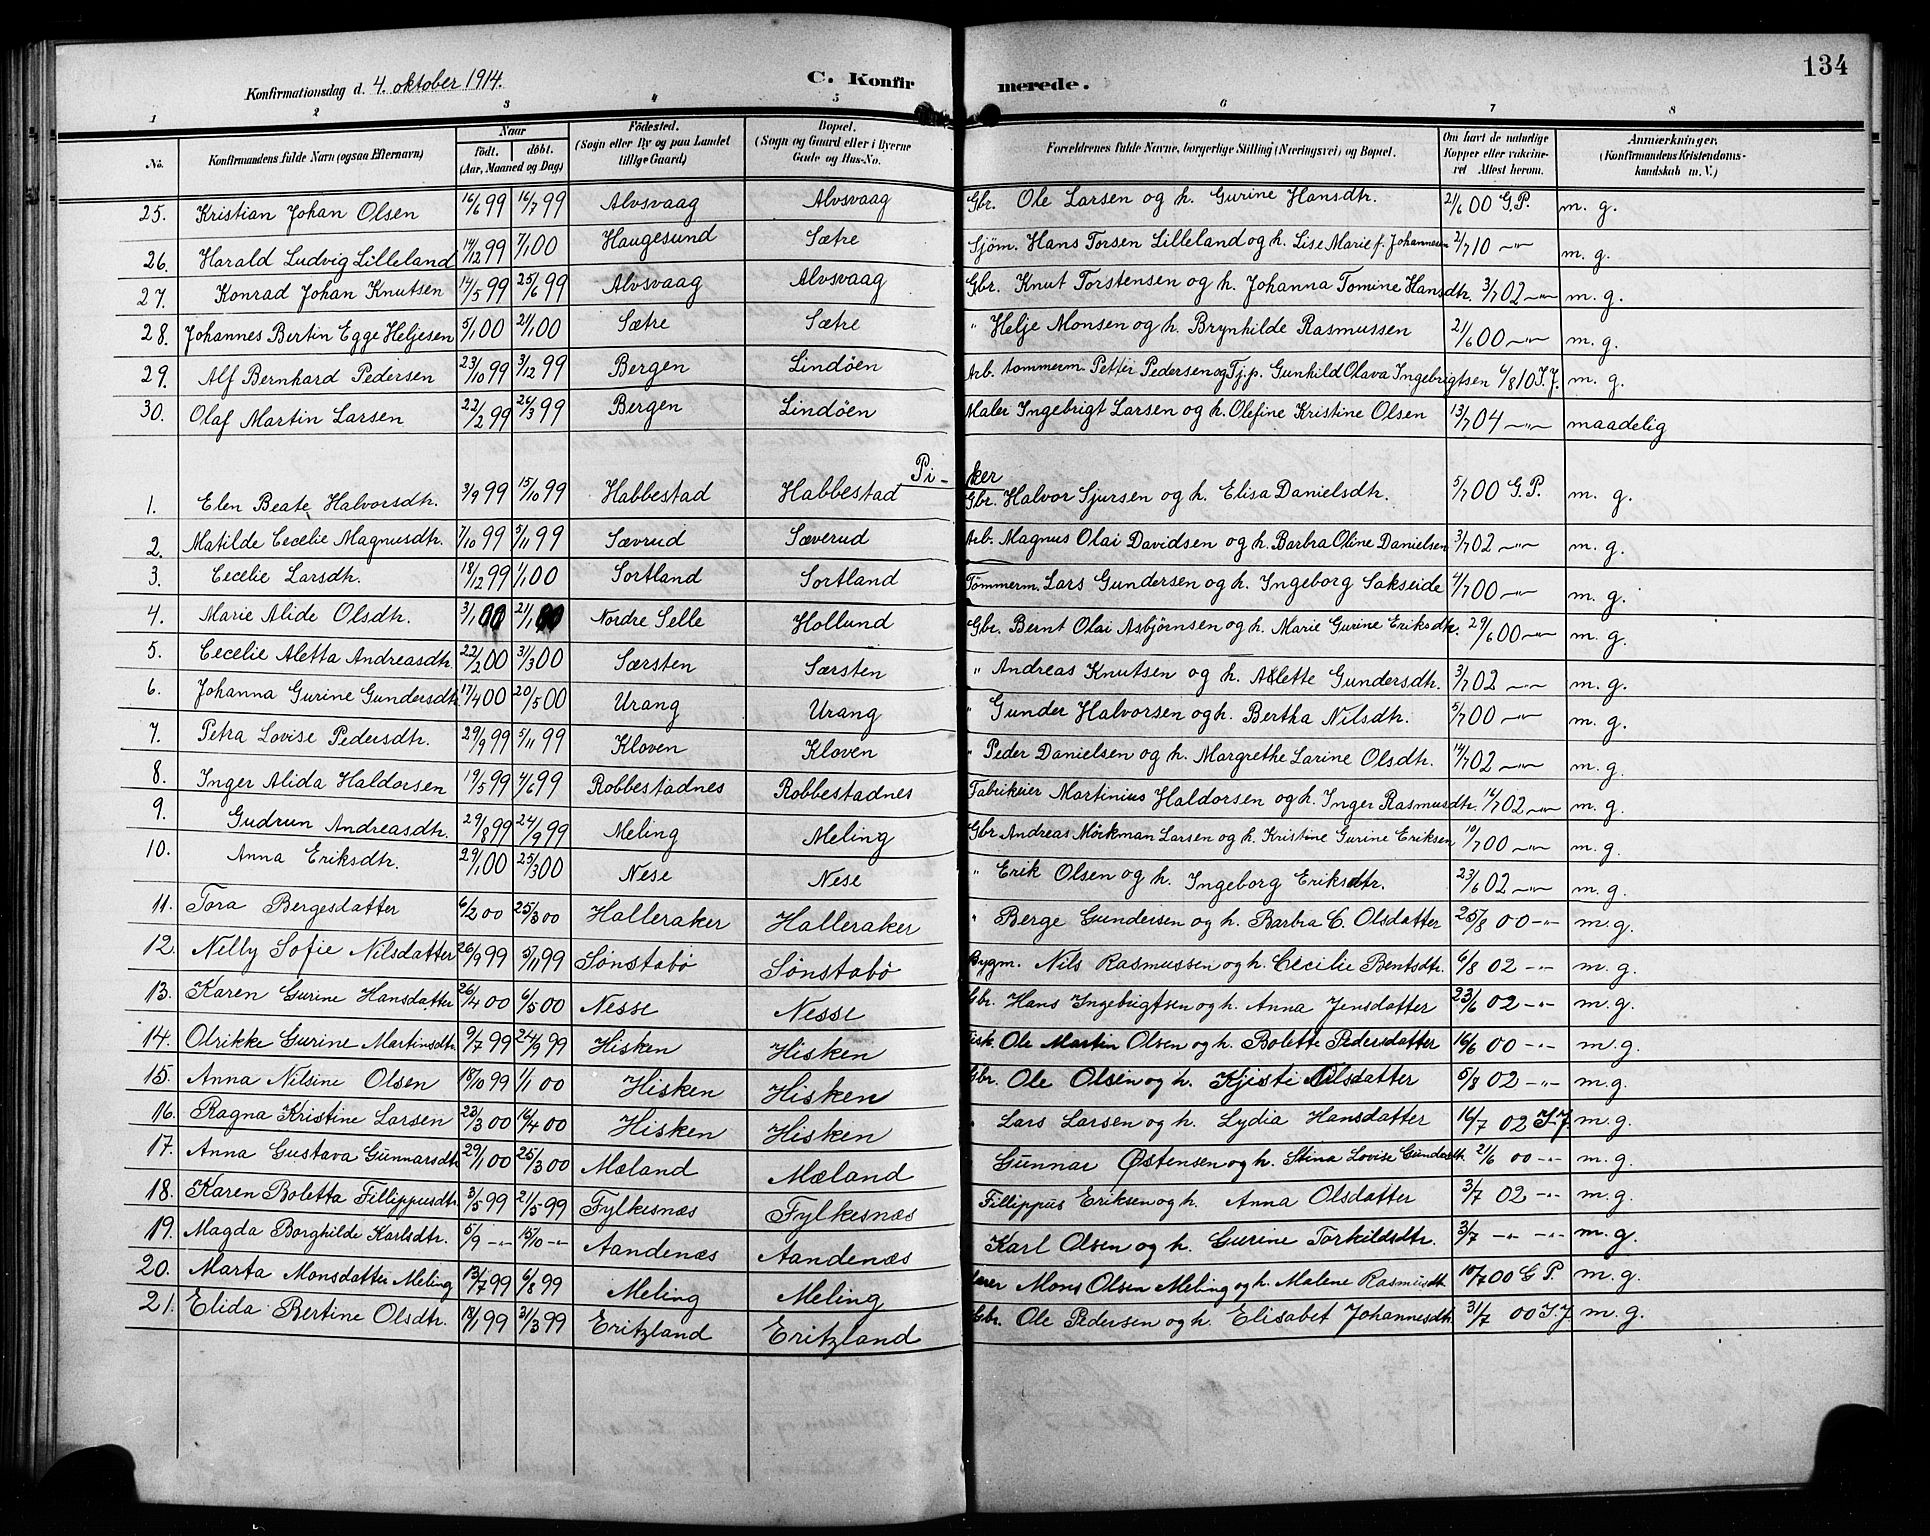 134
Konfirmationsdag d. 4. oktober 1914. C. Konfirmerede.
1 2 3 4 5 6 7 8
No. Konfirmandens fulde Navn (ogsaa Efternavn) Naar født. døbt. (Aar, Maaned og Dag) Fødested. (Sogn eller By og paa Landet tillige Gaard) Bopæl. (Sogn og Gaard eller i Byerne Gade og Hus-No. Forældrenes fulde Navne, borgerlige Stilling (Næringsvei) og Bopæl. Om havt de naturlige Kopper eller vakcineret Attest herom. Anmærkninger. (Konfirmandens Kristendomskundskab m. V.)
25. Kristian Johan Olsen 16/6 99 16/7 99 Alvsvaag Alvsvaag Gbr. Ole Larsen og h. Gurine Hansdtr. 21/6 00 G.P. m. g.
26. Harald Ludvig Lilleland 14/12 99 7/1 00 Haugesund Sætre Sjöm. Hans Torsen Lilleland og h. Lise Marie f. Johannesen 2/7 10 -"- m. g.
27. Konrad Johan Knutsen 14/5 99 25/6 99 Alvsvaag Alvsvaag Gbr. Knut Torstensen og h. Johanna Tomine Hansdtr. 3/7 02 -"- m. g.
28. Johannes Bertin Egge Heljesen 5/1 00 21/1 00 Sætre Sætre " Helje Monsen og h. Brynhilde Rasmussen 21/6 00 -"- m. g.
29. Alf Bernhard Pedersen 23/10 99 3/12 99 Bergen Lindöen Arb. tömmerm. Petter Pedersen og Tj.p. Gunhild Olava Ingebrigtsen 6/8 10 J.J. m. g.
30. Olaf Martin Larsen 22/2 99 26/3 99 Bergen Lindöen Maler Ingebrigt Larsen og h. Olefine Kristine Olsen 13/7 04 -"- maadelig
Pi-ker
1. Elen Beate Halvorsdtr. 3/9 99 15/10 99 Habbestad Habbestad Gbr. Halvor Sjursen og h. Elisa Danielsdtr. 5/7 00 G.P. m. g.
2. Matilde Cecelie Magnusdtr. 7/10 99 5/11 99 Sævrud Sæverud Arb. Magnus Olai Davidsen og h. Barbra Oline Danielsen 3/7 02 -"- m. g.
3. Cecelie Larsdtr. 18/12 99 1/1 00 Sortland Sortland Tömmerm. Lars Gundersen og h. Ingeborg Sakseide 4/7 00 -"- m. g.
4. Marie Alide Olsdtr. 3/1 00 21/1 00 Nordre Selle Hollund Gbr. Bernt Olai Asbjörnsen og h. Marie Gurine Eriksdtr. 29/6 00 -"- m. g.
5. Cecelie Aletta Andreasdtr. 22/2 00 31/3 00 Særsten Særsten " Andreas Knutsen og h. Alette Gundersdtr. 3/7 02 -"- m. g.
6. Johanna Gurine Gundersdtr. 17/4 00 20/5 00 Urang Urang " Gunder Halvorsen og h. Bertha Nilsdtr. 5/7 00 -"- m. g.
7. Petra Lovise Pedersdtr. 29/9 99 5/11 99 Kloven Kloven " Peder Danielsen og h. Margrethe Larine Olsdtr. 14/7 02 -"- m. g.
8. Inger Alida Haldorsen 19/5 99 4/6 99 Robbestadnes Robbestadnes Fabrikeier Martinius Haldorsen og h. Inger Rasmusdtr. 16/7 02 -"- m. g.
9. Gudrun Andreasdtr. 29/8 99 24/9 99 Meling Meling Gbr Andreas Mörkman Larsen og h. Kristine Gurine Eriksen 10/7 00 -"- m. g.
10. Anna Eriksdtr. 29/1 00 25/3 00 Nese Nese " Erik Olsen og h. Ingeborg Eriksdtr. 23/6 02 -"- m. g.
11. Tora Bergesdatter 6/2 00 25/3 00 Halleraker Halleraker " Berge Gundersen og h. Barbra C. Olsdatter 25/8 00 -"- m. g.
12. Nilly Sofie Nilsdatter 26/9 99 5/11 99 Sønstabø Sønstabø Bygm. Nils Rasmussen og h. Cecilie Bentsdtr. 6/8 02 -"- m. g.
13. Karen Gurine Hansdatter 26/4 00 6/5 00 Nesse Nesse Gbr. Hans Ingebrigtsen og h. Anna Jensdatter 23/6 02 -"- m. g.
14. Olrikke Gurine Martinsdtr. 9/7 99 24/9 99 Hisken Hisken Fisk. Ole Martin Olsen og h. Bolette Pedersdatter 16/6 00 -"- m. g.
15. Anna Nilsine Olsen 18/10 99 1/1 00 Hisken Hisken Gbr. Ole Olsen og h. Kjersti Nilsdatter 5/8 02 -"- m. g.
16. Ragna Kristine Larsen 23/3 00 16/4 00 Hisken Hisken " Lars Larsen og h. Lydia Hansdatter 16/7 02 J.J m. g.
17. Anna Gustava Gunnarsdtr 29/1 00 25/3 00 Mæland Mæland Gunnar Østensen og h. Stina Lovise Gundersdtr. 21/6 00 -"- m. g.
18. Karen Boletta Fillippusdtr. 3/5 99 21/5 99 Fylkesnæs Fylkesnæs Fillippus Eriksen og h. Anna Olsdatter 3/7 02 -"- m. g.
19. Magda Borghilde Karlsdtr. 5/9 -"- 15/10 -"- Aandenæs Aandenæs Karl Olsen og h. Gurine Torkildsdtr. 3/7 -"- -"- m. g.
20. Marta Monsdatter Meling 13/7 99 6/8 99 Meling Meling Lærer Mons Olsen Meling og h. Malene Rasmusdtr 10/7 00 G P. m. g.
21. Elida Bertine Olsdtr. 18/1 99 31/3 99 Eritzland Eritzland Gbr. Ole Pedersen og h. Elisabet Johannesdtr. 31/7 00 J.J m. g.